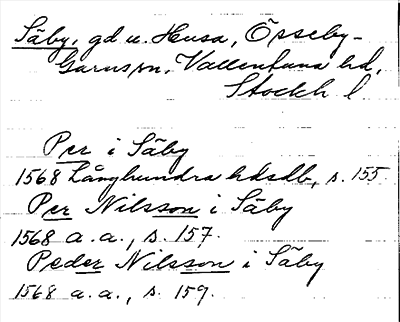 Säby, gd u. Husa, Össeby-
Garns sn, Vallentuna hd,
Stockh. l
Per i Säby
1568 Långhundra hdsdb, s. 155
Per Nilsson i Säby
1568 a.a., s. 157.
Peder Nilsson i Säby
1568 a.a., s. 159.